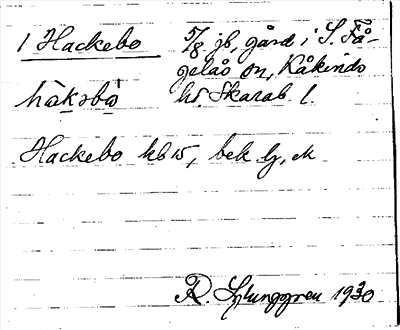 1 Hackebo 5/8 jb, gård i S. Få-
gelås sn, Kåkinds
hd Skarab. l.
hàkəbò
Hackebo kb 15, bek lj, ek
R. Ljunggren 1930